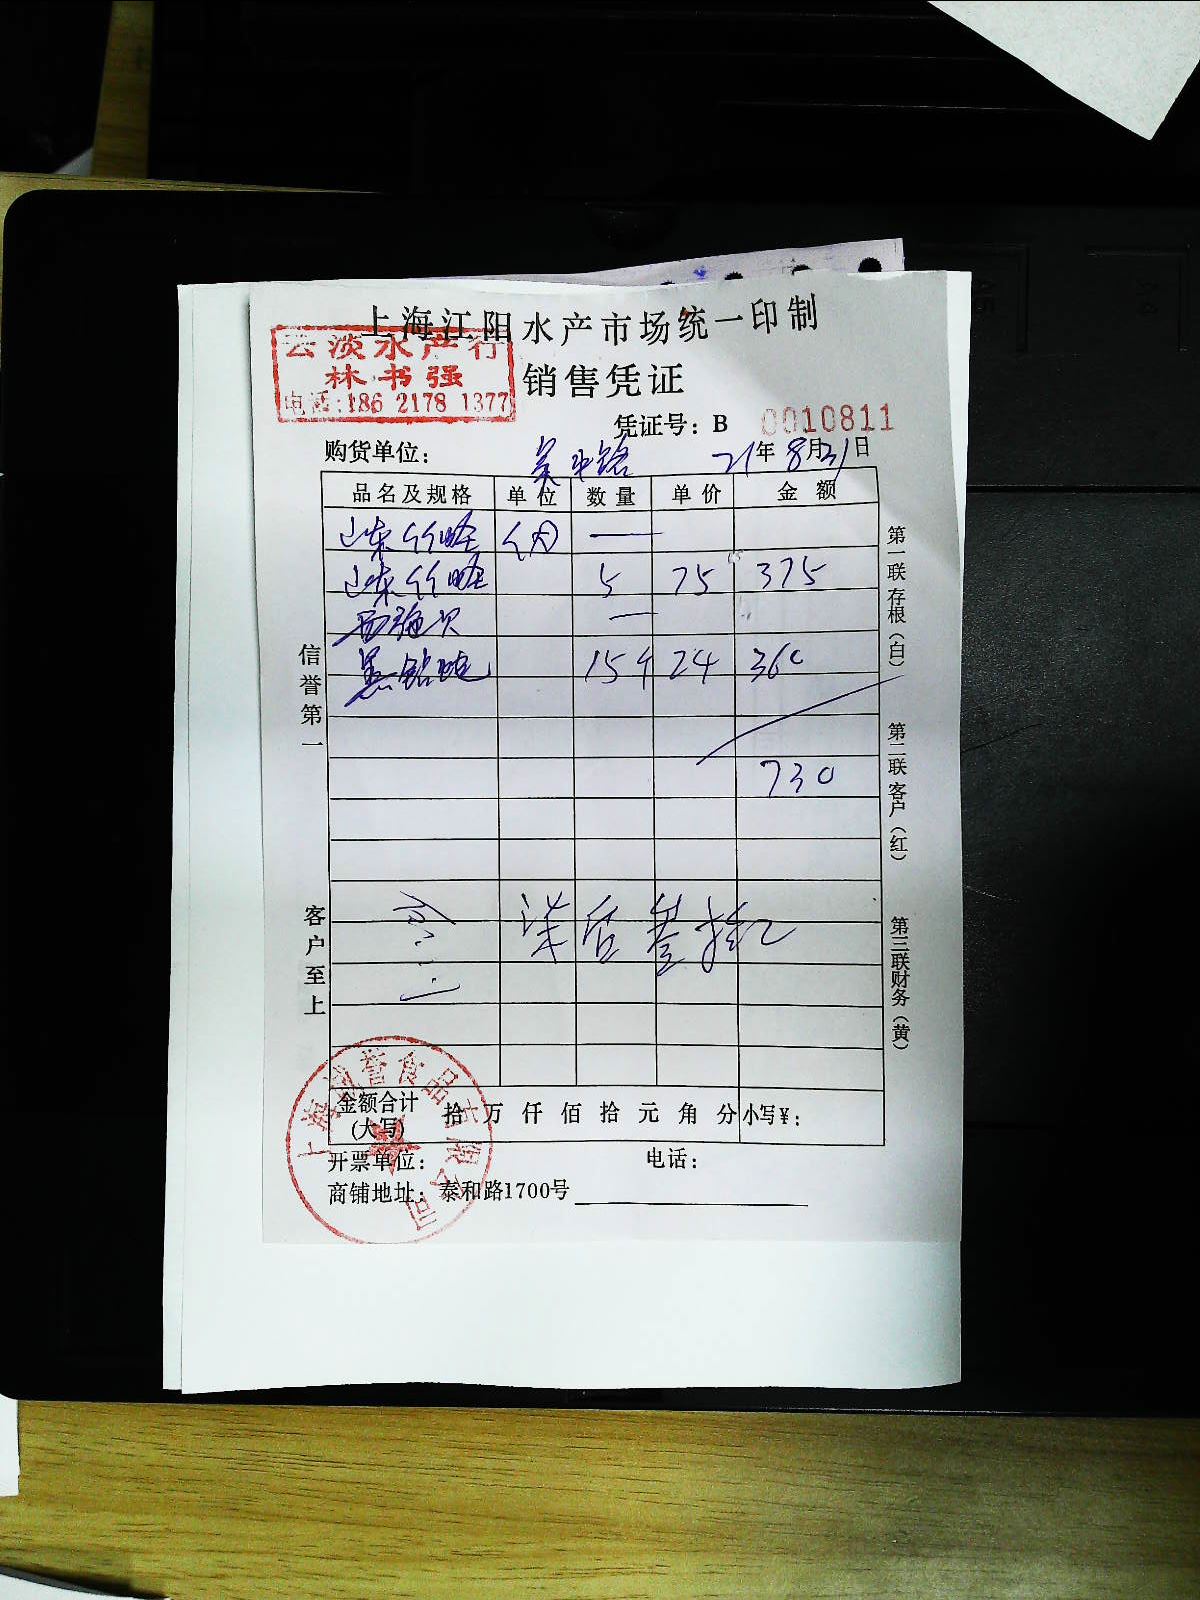 上海江阳水产市场统一印制
云淡水产行
林书强
电话:186 2178 1377
销售凭证
凭证号: B 0010811
购货单位: 21年8月31日
品名及规格 单位 数量 单价 金额
山东竹蛏 一
山东竹蛏 5 75 375
一
15个 24 360
730
信誉第一
客户至上
第一联存根(白)
第二联客户(红)
第三联财务(黄)
金额合计(大写) 拾 万 仟 佰 拾 元 角 分 小写¥:
开票单位: 电话:
商铺地址: 泰和路1700号
食品有限公司